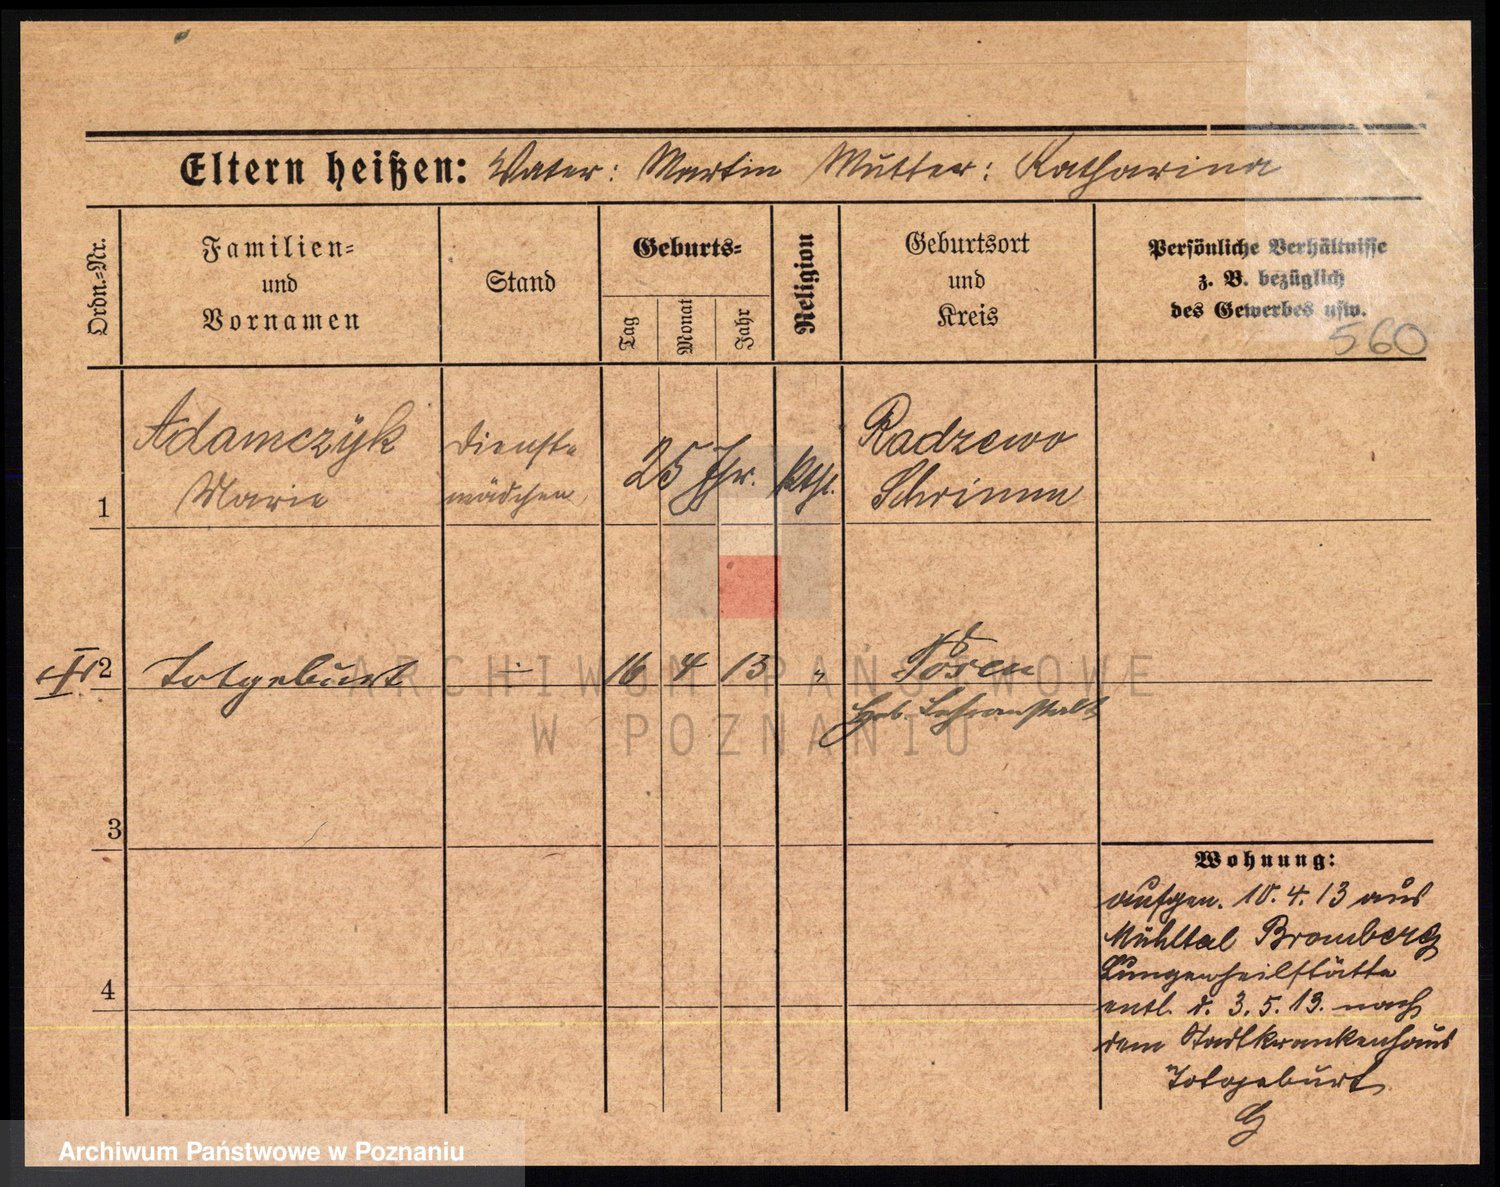 Eltern heißen: Vater: Martin Mutter: Katharina
Ordn.=Nr.
Familien=
und
Vornamen
Stand
Geburts=
Tag
Monat
Jahr
Religion
Geburtsort
und
Kreis
Persönliche Verhältnisse
z. B. bezüglich
des Gewerbes usw.
560
1
Adamczyk
Marie
Dienst=
mädchen
25 Jhr.
kth.
Radzewo
Schrimm
2
Totgeburt
16 4 13 "
Posen
Heb. Lehranstalt
3
4
Wohnung:
aufgen. 10.4.13 aus
Mühltal Bromberg
Lungenheilstätte
entl. d. 3.5.13. nach
dem Stadtkrankenhaus
Totgeburt
ARCHIWUM PAŃSTWOWE
W POZNANIU
Archiwum Państwowe w Poznaniu